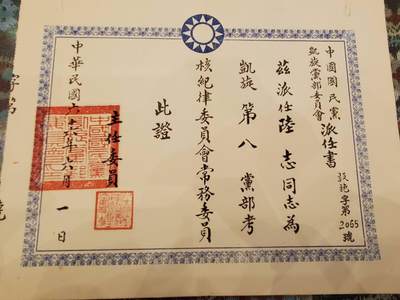 中國國民黨
凱旋黨部委員會
派任書
字第
號
茲派任陸志同志為
凱旋第八黨部考
核紀律委員會常務委員
此證
主任委員
中華民國六十六年六月一日